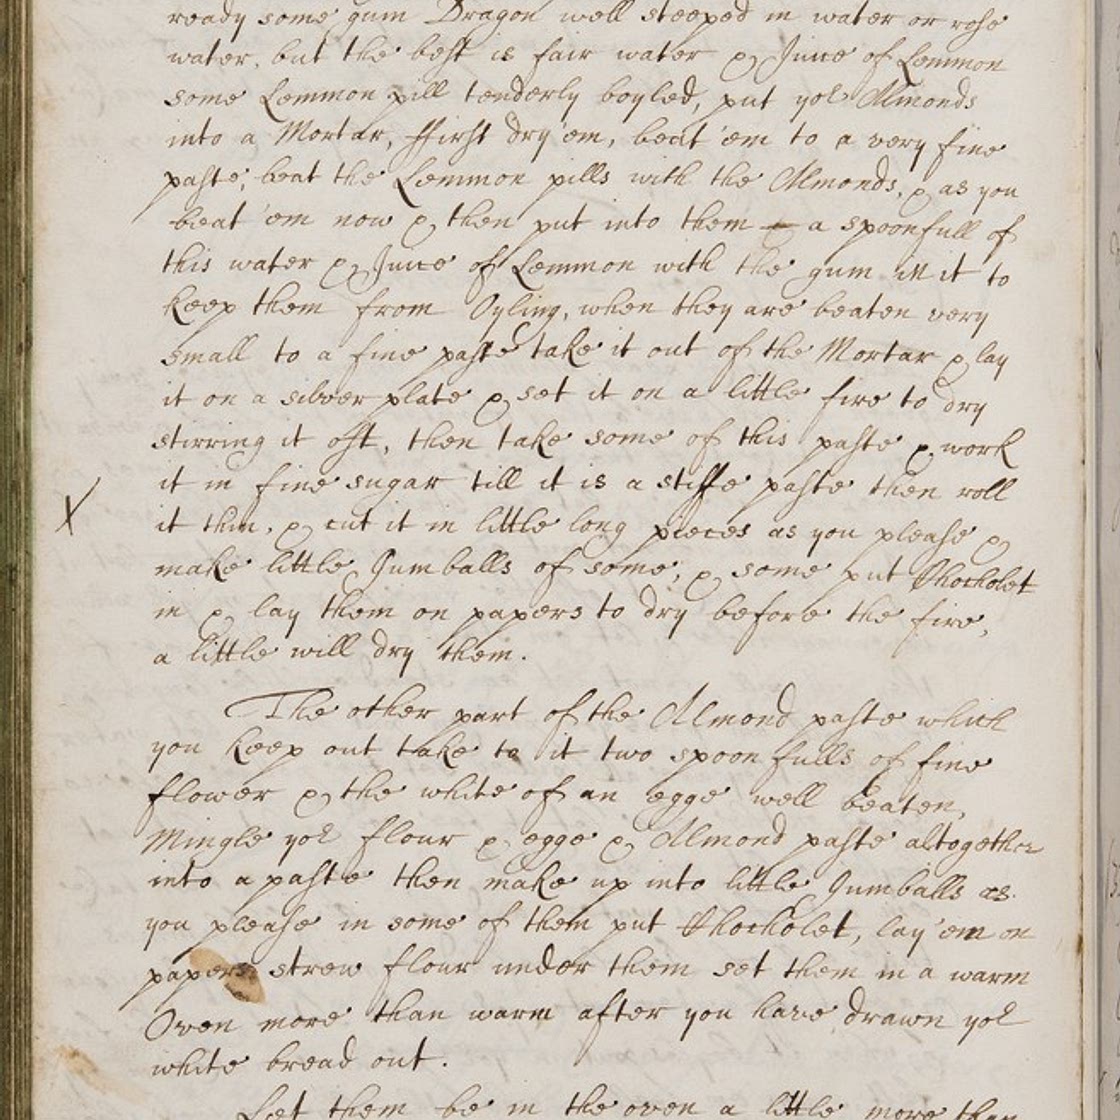 ready some gum Dragon well steeped in water or rose
water, but the best is fair water & Juice of Lemmon
some Lemmon pill tenderly boyled, put yor Almonds
into a Mortar, ffirst dry 'em, beat 'em to a very fine
paste, beat the Lemmon pills with the Almonds, & as you
beat 'em now & then put into them & a spoonfull of
this water & Juice of Lemmon with the gum in it to
keep them from Oyling, when they are beaten very
small to a fine paste take it out of the Mortar & lay
it on a silver plate & set it on a little fire to dry
stirring it oft, then take some of this paste & work
it in fine sugar till it is a stiffe paste then roll
X
it thin, & cut it in little long pieces as you please &
make little Jumballs of some, & some put Chocholet
in & lay them on papers to dry before the fire,
a little will dry them.
The other part of the Almond paste which
you keep out take to it two spoon fulls of fine
flower & the white of an egge well beaten,
Mingle yor flour & egge & Almond paste altogether
into a paste then make up into little Jumballs as
you please in some of them put Chocholet, lay 'em on
papers strew flour under them set them in a warm
Oven more than warm after you have drawn yor
white bread out.
Let them be in the oven a little more then